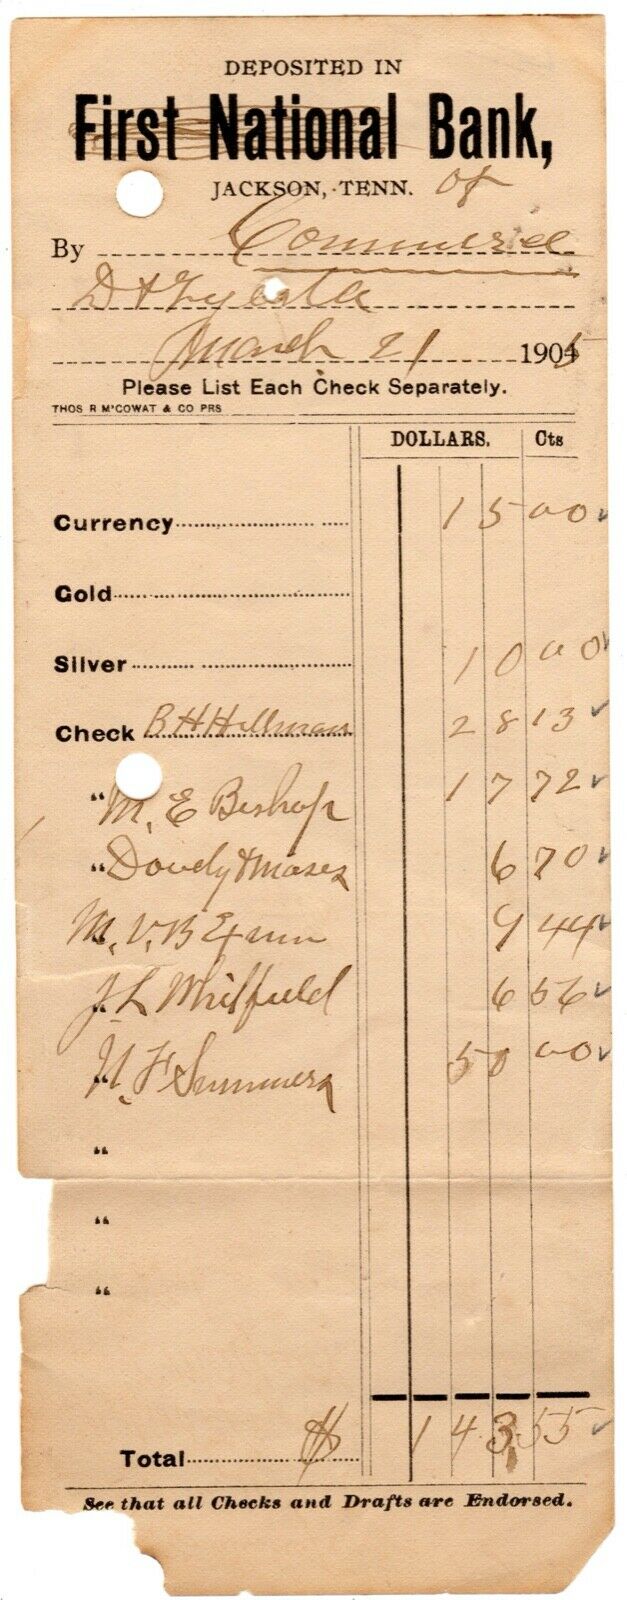 DEPOSITED IN
First National Bank,
JACKSON, TENN. of
By Commerce
March 21 1905
Please List Each Check Separately.
THOS R M'COWAT & CO PRS
DOLLARS. Cts
Currency 15 00
Gold
Silver 10 00
Check B H Hillman 28 13
" M. E Bishop 17 72
" Dowdy & Moses 6 70
" M. V. B Exum 9 44
" J. L Whitfield 6 56
" N. F Summers 50 00
"
"
"
Total $ 143.55
See that all Checks and Drafts are Endorsed.